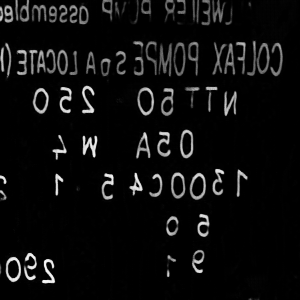 WEILER assembled
COLFAX POMPES A LOCATE (
NTT 50 250
05A W 4
1300C45 1
5 0
9 1
290